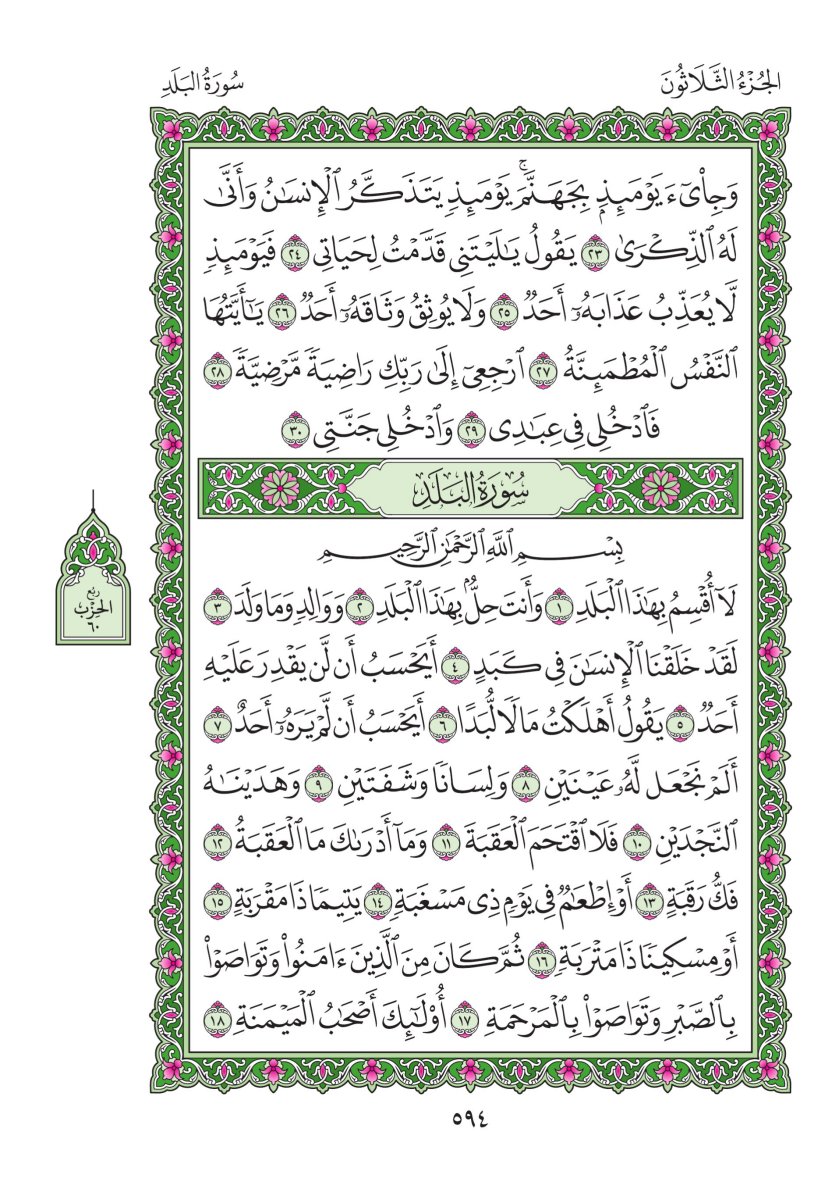 الجُزْءُ الثَّلَاثُونَ
سُورَةُ البَلَدِ
وَجِاْىٓءَ يَوْمَئِذِۭ بِجَهَنَّمَۚ يَوْمَئِذٖ يَتَذَكَّرُ ٱلْإِنسَٰنُ وَأَنَّىٰ
لَهُ ٱلذِّكْرَىٰ ٢٣ يَقُولُ يَٰلَيْتَنِى قَدَّمْتُ لِحَيَاتِى ٢٤ فَيَوْمَئِذٖ
لَّا يُعَذِّبُ عَذَابَهُۥٓ أَحَدٞ ٢٥ وَلَا يُوثِقُ وَثَاقَهُۥٓ أَحَدٞ ٢٦ يَٰٓأَيَّتُهَا
ٱلنَّفْسُ ٱلْمُطْمَئِنَّةُ ٢٧ ٱرْجِعِىٓ إِلَىٰ رَبِّكِ رَاضِيَةٗ مَّرْضِيَّةٗ ٢٨
فَٱدْخُلِى فِى عِبَٰدِى ٢٩ وَٱدْخُلِى جَنَّتِى ٣٠
سُورَةُ البَلَدِ
بِسْمِ ٱللَّهِ ٱلرَّحْمَٰنِ ٱلرَّحِيمِ
لَآ أُقْسِمُ بِهَٰذَا ٱلْبَلَدِ ١ وَأَنتَ حِلُّۢ بِهَٰذَا ٱلْبَلَدِ ٢ وَوَالِدٖ وَمَا وَلَدَ ٣
لَقَدْ خَلَقْنَا ٱلْإِنسَٰنَ فِى كَبَدٍ ٤ أَيَحْسَبُ أَن لَّن يَقْدِرَ عَلَيْهِ
أَحَدٞ ٥ يَقُولُ أَهْلَكْتُ مَالٗا لُّبَدًا ٦ أَيَحْسَبُ أَن لَّمْ يَرَهُۥٓ أَحَدٌ ٧
أَلَمْ نَجْعَل لَّهُۥ عَيْنَيْنِ ٨ وَلِسَانٗا وَشَفَتَيْنِ ٩ وَهَدَيْنَٰهُ
ٱلنَّجْدَيْنِ ١٠ فَلَا ٱقْتَحَمَ ٱلْعَقَبَةَ ١١ وَمَآ أَدْرَىٰكَ مَا ٱلْعَقَبَةُ ١٢
فَكُّ رَقَبَةٍ ١٣ أَوْ إِطْعَٰمٞ فِى يَوْمٖ ذِى مَسْغَبَةٖ ١٤ يَتِيمٗا ذَا مَقْرَبَةٍ ١٥
أَوْ مِسْكِينٗا ذَا مَتْرَبَةٖ ١٦ ثُمَّ كَانَ مِنَ ٱلَّذِينَ ءَامَنُوا۟ وَتَوَاصَوْا۟
بِٱلصَّبْرِ وَتَوَاصَوْا۟ بِٱلْمَرْحَمَةِ ١٧ أُو۟لَٰٓئِكَ أَصْحَٰبُ ٱلْمَيْمَنَةِ ١٨
ربع
الحِزْب
٦٠
٥٩٤